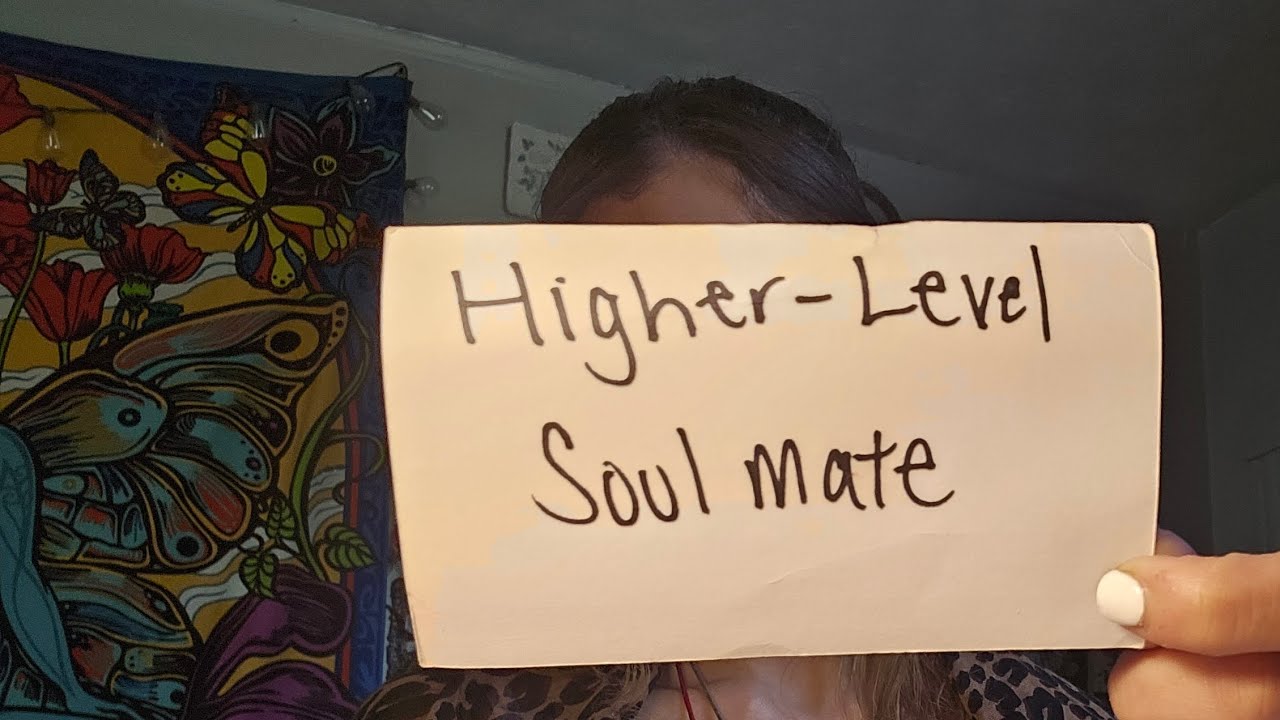 Higher-Level
Soul mate